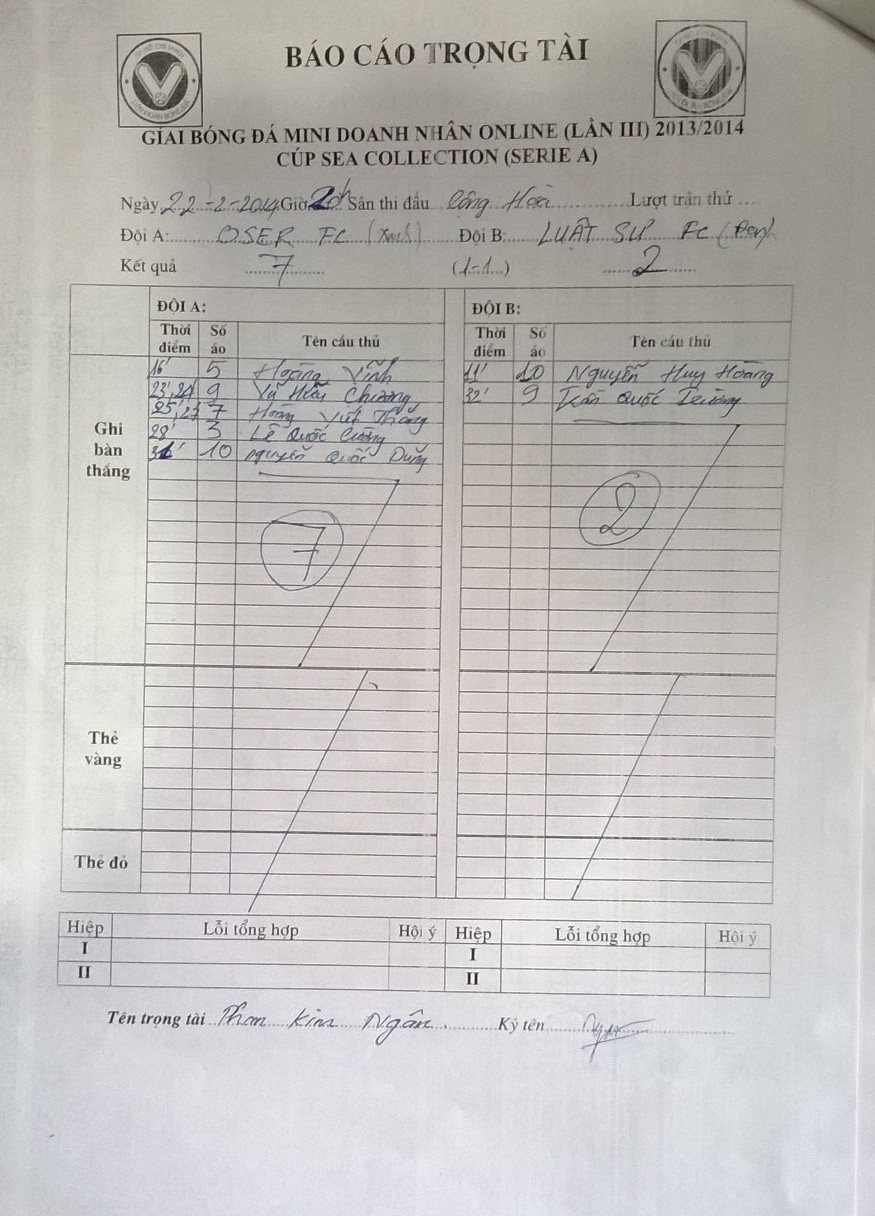 BÁO CÁO TRỌNG TÀI
GIẢI BÓNG ĐÁ MINI DOANH NHÂN ONLINE (LẦN III) 2013/2014
CÚP SEA COLLECTION (SERIE A)
Ngày 22-2-2014 Giờ 20h Sân thi đấu Cộng Hòa Lượt trận thứ
Đội A: OSER FC (Xanh) Đội B: LUẬT SƯ FC (Đen)
Kết quả 7 (1-1) 2
ĐỘI A: ĐỘI B:
Thời điểm Số áo Tên cầu thủ Thời điểm Số áo Tên cầu thủ
Ghi bàn thắng
16' 5 Hoàng Vĩnh 11' 10 Nguyễn Huy Hoàng
23', 24' 9 Vũ Hữu Chương 32' 9 Trần Quốc Trường
25', 27' 7 Hoàng Viết Thắng
28' 3 Lê Quốc Cường
10 Nguyễn Quốc Dũng
7 2
Thẻ vàng
Thẻ đỏ
Hiệp Lỗi tổng hợp Hội ý Hiệp Lỗi tổng hợp Hội ý
I I
II II
Tên trọng tài Phan Kim Ngân. Ký tên